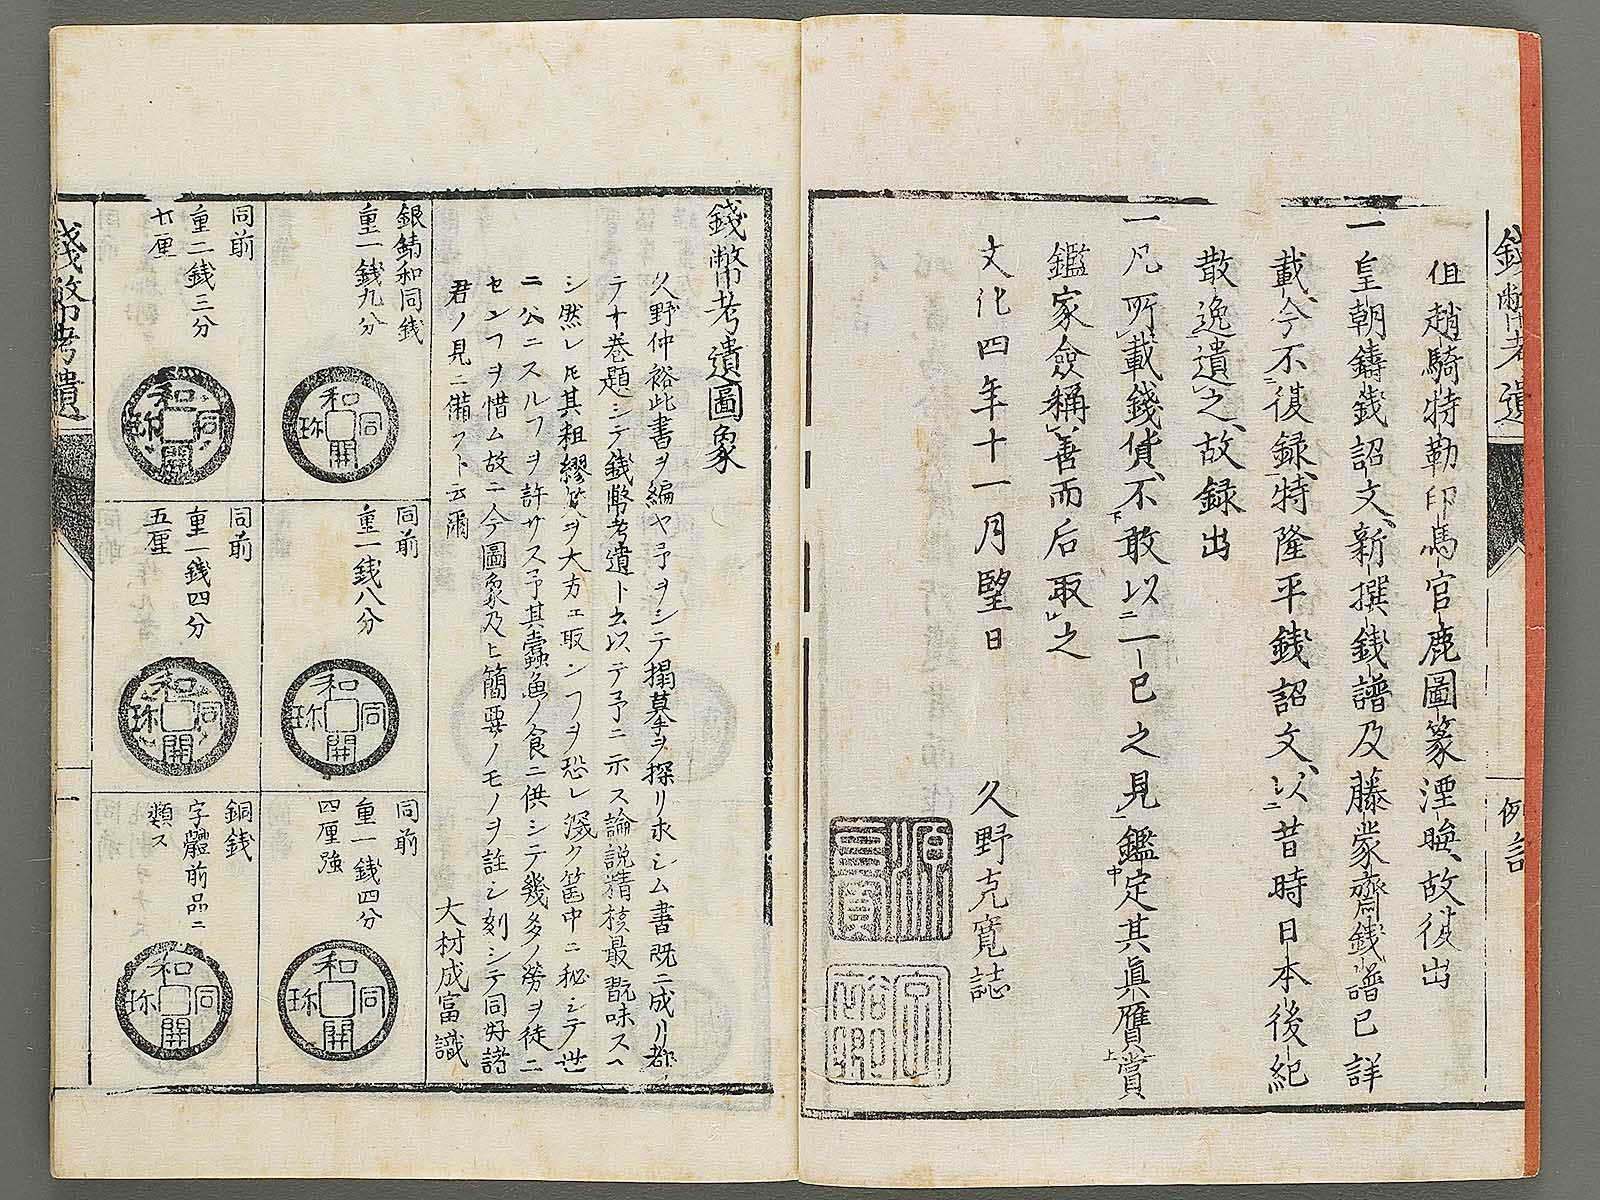 錢幣考遺
例言
但趙騎特勒印馬官鹿圖篆湮晦故復出
一皇朝鑄銭詔文新撰銭譜及藤蒙齋銭譜已詳
載今不復録特隆平銭詔文以昔時日本後紀
散逸遺之故録出
一凡所載錢貨不敢以一己之見鑑定其眞贋賞
鑑家僉稱善而后取之
文化四年十一月望日 久野克寛誌
錢幣考遺圖象
久野仲裕此書ヲ編ヤ予ヲシテ搨摹ヲ探リ求シム書既ニ成リ都
テ十巻題シテ錢幣考遺ト云以テ予ニ示ス論説精核最翫味スヘ
シ然レ𪜈其粗繆ヲ大方ニ取ンヿヲ恐レ深ク筐中ニ秘シテ世
ニ公ニスルヿヲ許サス予其蠧魚ノ食ニ供シテ幾多ノ勞ヲ徒ニ
センヿヲ惜ム故ニ今圖象及ヒ簡要ノモノヲ註シ刻シテ同好諸
君ノ見ニ備フト云爾
大村成富識
銀錆和同銭
重一銭九分
和同開珎
同前
重一銭八分
和同開珎
同前
重一銭四分
四厘強
和同開珎
同前
重二銭三分
七厘
和同開珎
同前
重一銭四分
五厘
和同開珎
銅銭
字體前品ニ
類ス
和同開珎
錢幣考遺
一